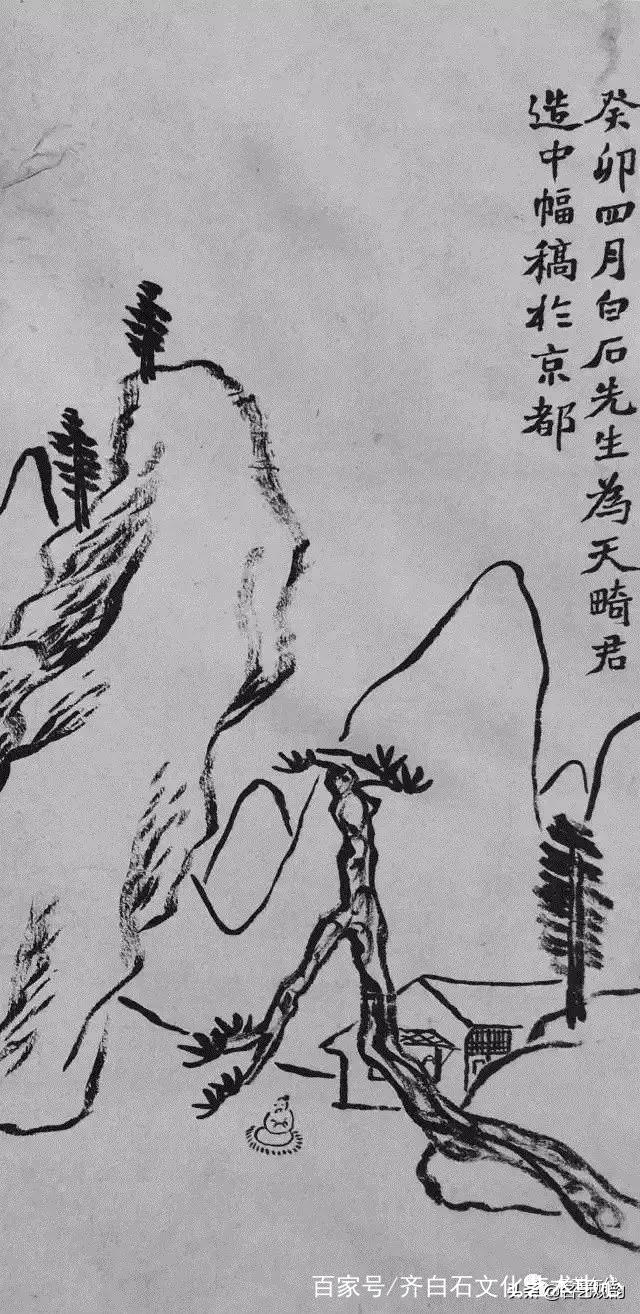 癸卯四月白石先生為天畸君
造中幅稿於京都
百家号/齐白石文化艺术中心